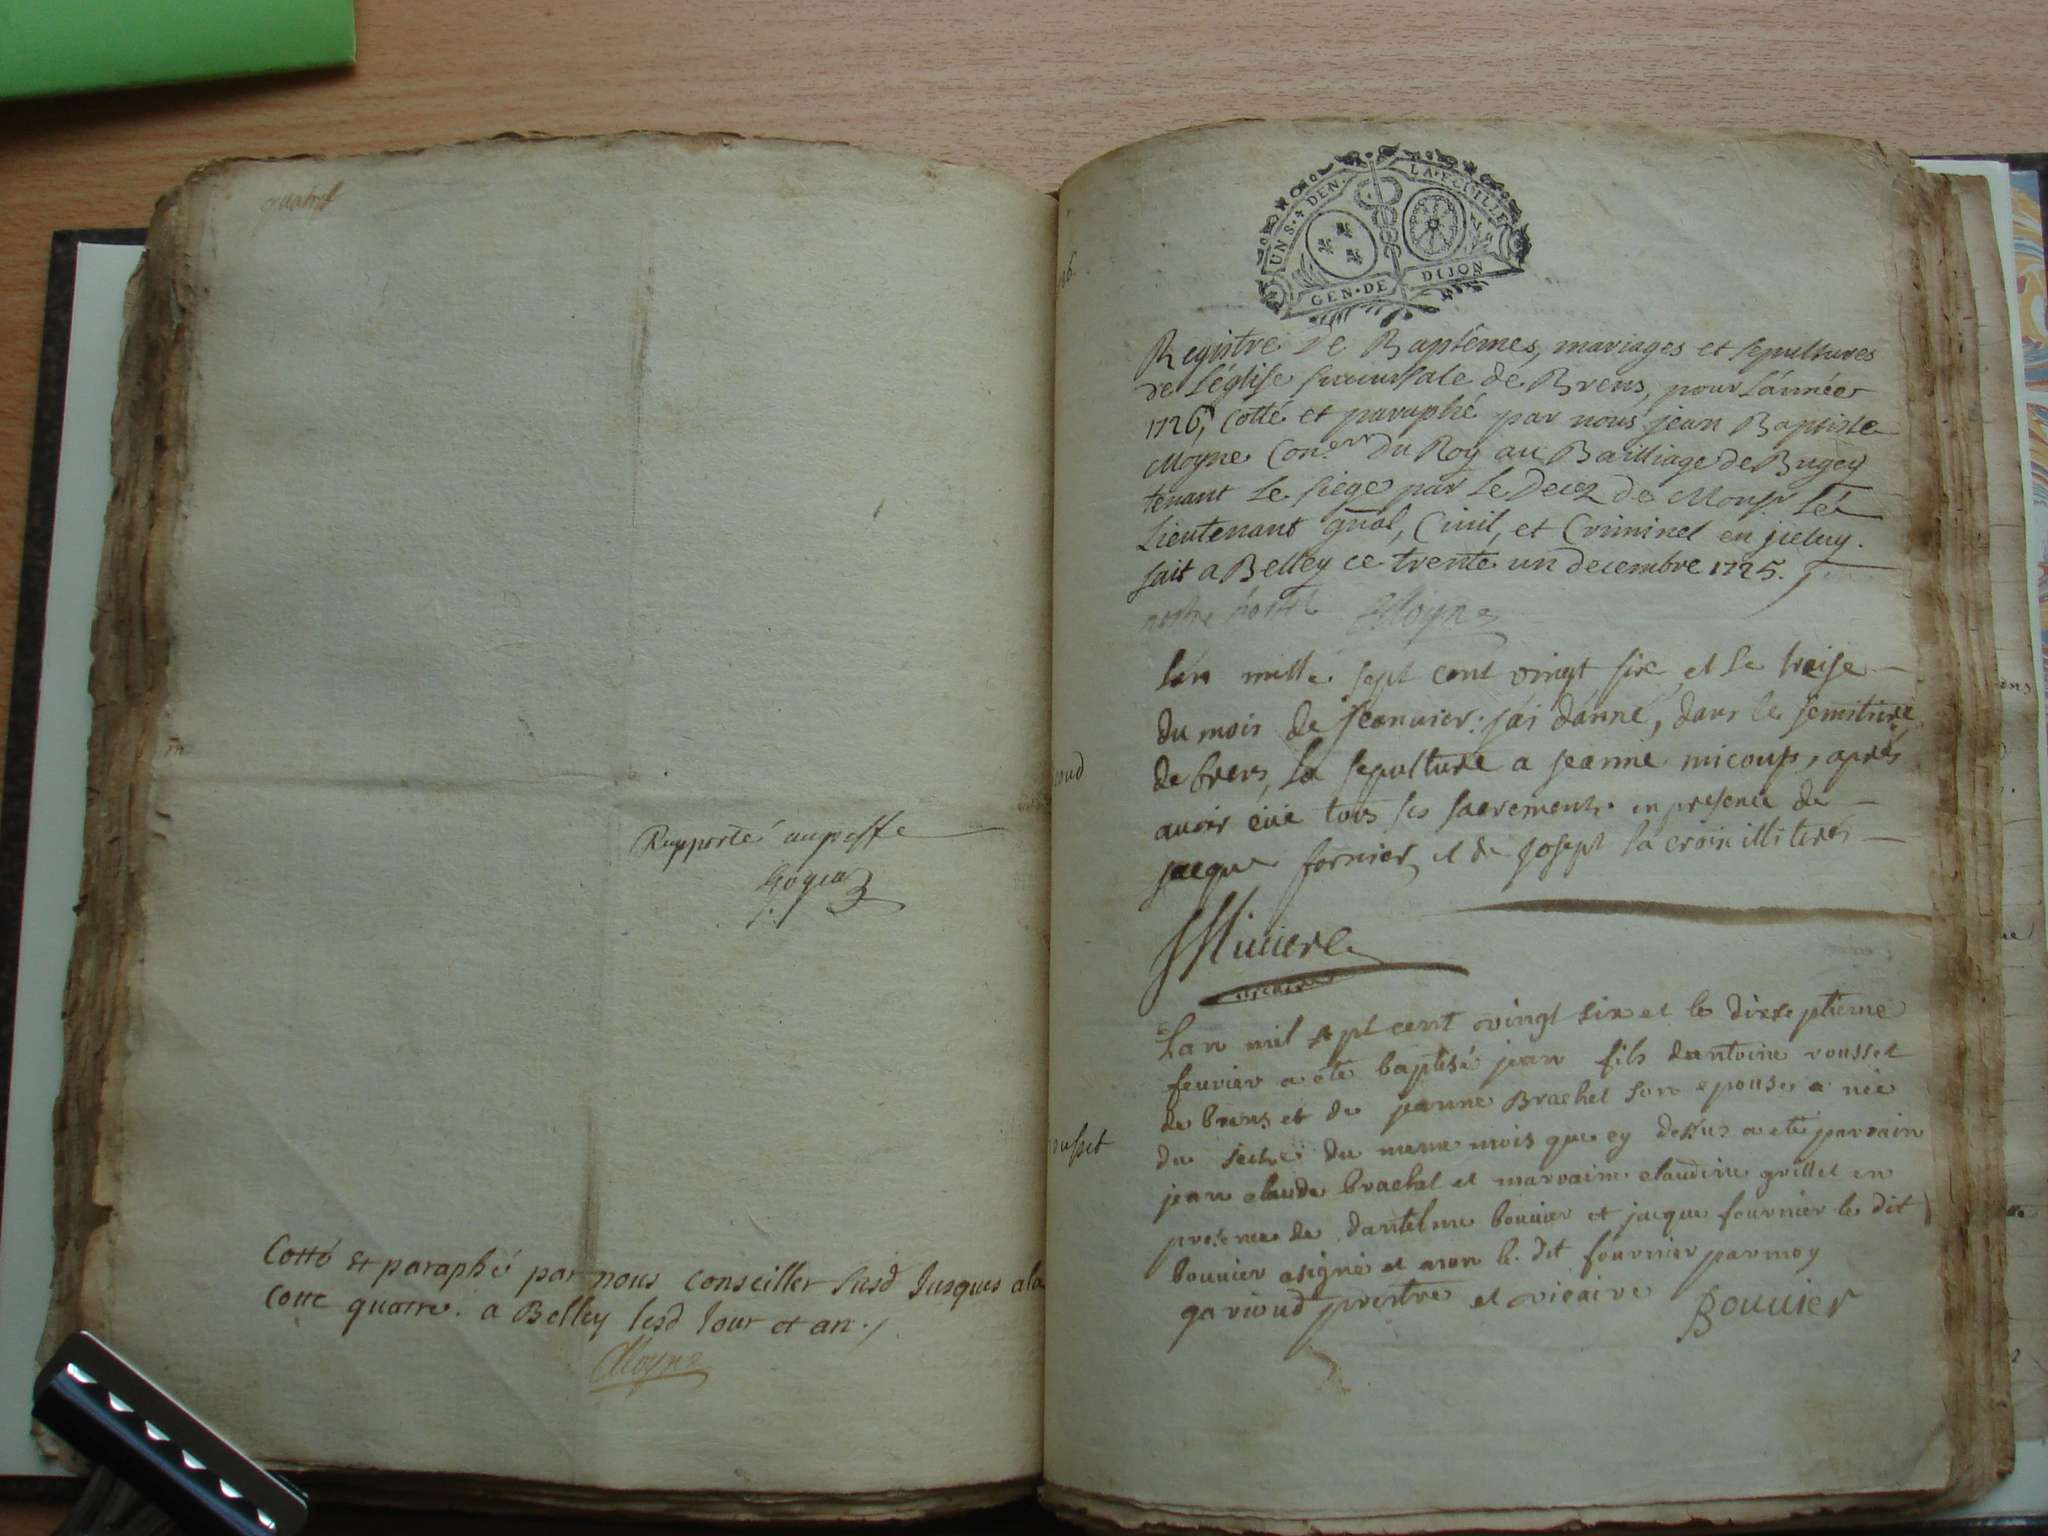 quatre
Rapporté au greffe
Cotté et paraphé par nous conseiller susd Jusques a la
cotte quatre. a Belley lesd Jour et an.
Moyne
UN S. 4 DEN. LA FEUILLE
GEN. DE DIJON
Registre de Baptêmes, mariages et sepultures
de L'églisse succursale de Brens, pour L'année
1726, Cotté et paraphé par nous jean Baptiste
Moyne Con.er du Roy au Bailliage de Bugey
tenant Le siege par Le Decez de Monsr Le
Lieutenant gnal, Civil, et Criminel en jceluy.
fait a Belley ce trente un decembre 1725.
nostre hostel Moyne
L'an mille sept cent vingt six et le treise
du mois de jeanvier: j'ai donné, dans le semitiere
de brens, la sepulture a jeanne micoup, apres
avoir eüe tous ses sacrements en presence de
jacque fornier et de joseph la croix illiteres
vicaire
Lan mil sept cent vingt six et le dixseptieme
feuvier a ete baptisé jean fils dantoine rousset
de brens et de jeanne Brachet son epouse a née
du seize du meme mois que cy desus a ete parrain
jean claude brachet et marraine claudine grillet en
presence de dantelme bouvier et jacque fournier le dit
bouvier a signé et non le dit fournier par moy
garioud prestre et vicaire Bouvier